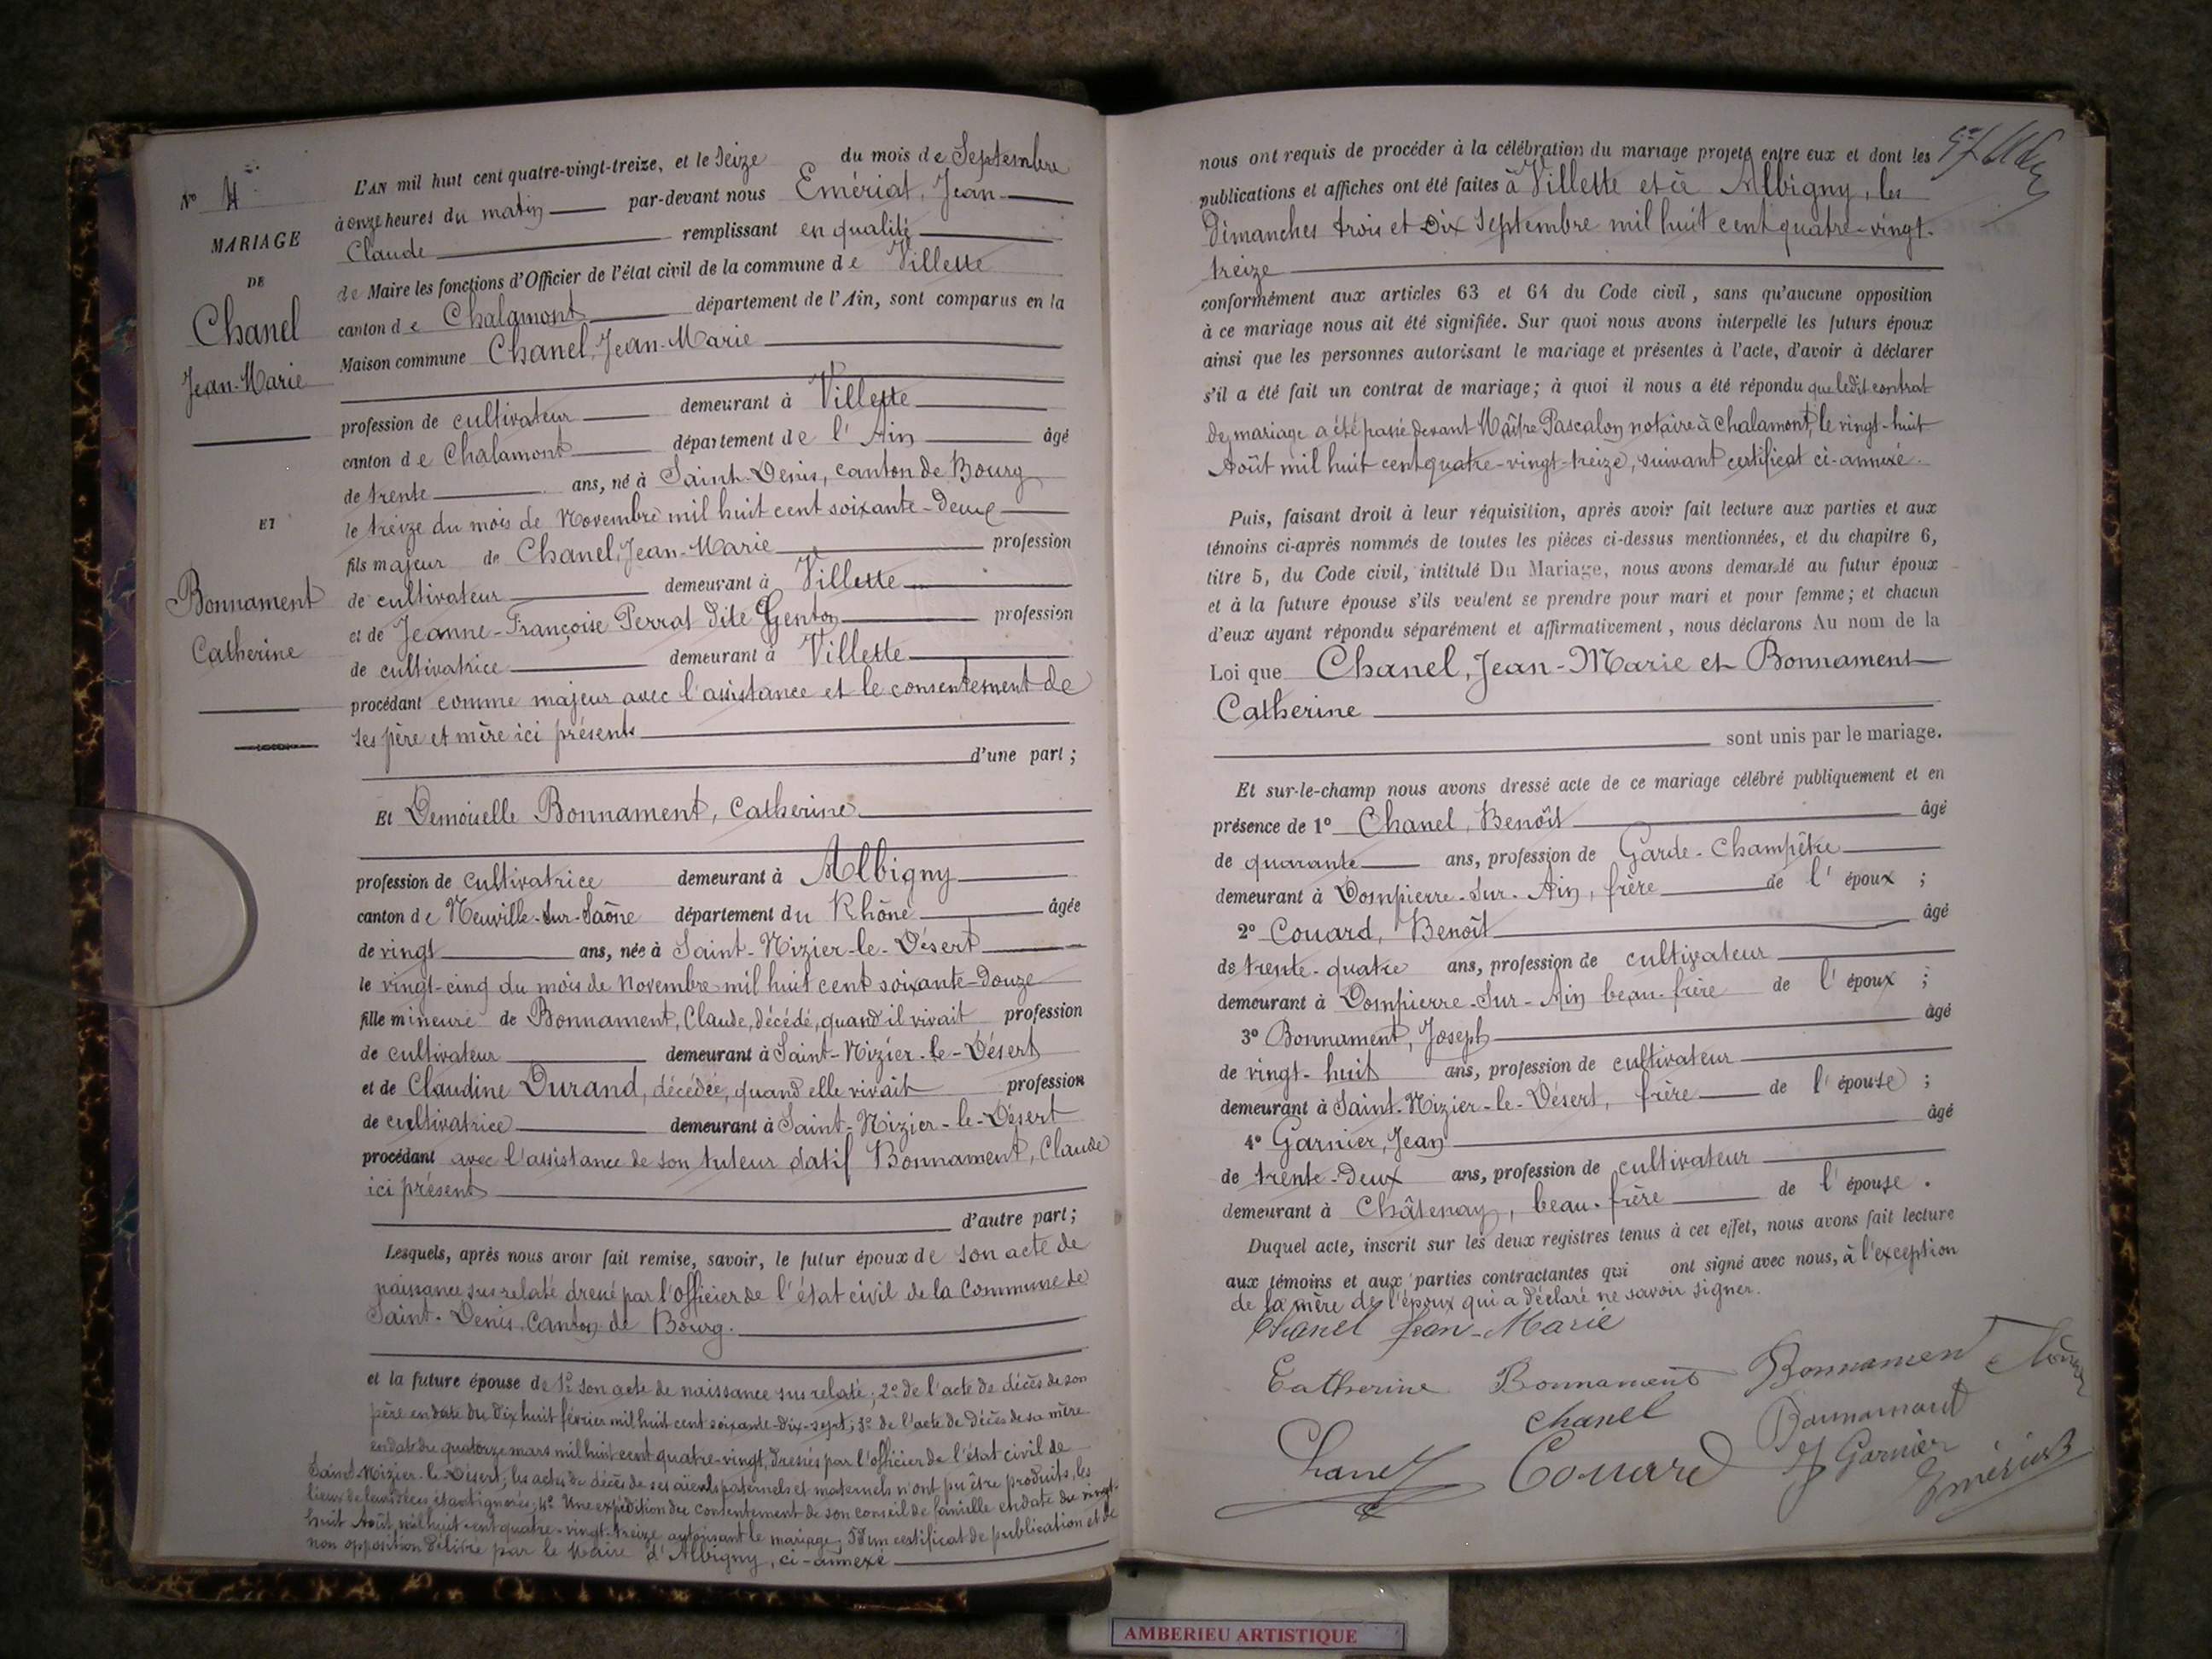 N° 4
MARIAGE
DE
Chanel
Jean-Marie
ET
Bonnament
Catherine
L'AN mil huit cent quatre-vingt-treize, et le Seize du mois de Septembre
à onze heures du matin par-devant nous Emériat, Jean-
Claude remplissant en qualité
de Maire les fonctions d'Officier de l'état civil de la commune de Villette
canton de Chalamont département de l'Ain, sont comparus en la
Maison commune Chanel, Jean-Marie
profession de cultivateur demeurant à Villette
canton de Chalamont département de l'Ain âgé
de trente ans, né à Saint-Denis, canton de Bourg
le treize du mois de Novembre mil huit cent soixante-deux
fils majeur de Chanel, Jean-Marie profession
de cultivateur demeurant à Villette
et de Jeanne-Françoise Perrat dite Genton profession
de cultivatrice demeurant à Villette
procédant comme majeur avec l'assistance et le consentement de
ses père et mère ici présents
d'une part ;
Et Demoiselle Bonnament, Catherine
profession de cultivatrice demeurant à Albigny
canton de Neuville-sur-Saône département du Rhône âgée
de vingt ans, née à Saint-Nizier-le-Désert
le vingt-cinq du mois de Novembre mil huit cent soixante-douze
fille mineure de Bonnament, Claude, décédé, quand il vivait profession
de cultivateur demeurant à Saint-Nizier-le-Désert
et de Claudine Durand, décédée, quand elle vivait profession
de cultivatrice demeurant à Saint-Nizier-le-Désert
procédant avec l'assistance de son tuteur datif Bonnament, Claude
ici présent
d'autre part ;
Lesquels, après nous avoir fait remise, savoir, le futur époux de son acte de
naissance sus relaté dressé par l'officier de l'état civil de la Commune de
Saint-Denis, Canton de Bourg.
et la future épouse de 1° son acte de naissance sus relaté ; 2° de l'acte de décès de son
père en date du dix huit février mil huit cent soixante-dix-sept ; 3° de l'acte de décès de sa mère
en date du quatorze mars mil huit cent quatre-vingt, dressés par l'officier de l'état civil de
Saint-Nizier-le-Désert ; les actes de décès de ses aïeuls paternels et maternels n'ont pu être produits, les
lieux de leurs décès étant ignorés ; 4° Une expédition du consentement de son conseil de famille en date du vingt-
huit Août mil huit cent quatre-vingt-treize autorisant le mariage ; 5° d'un certificat de publication et de
non opposition délivré par le Maire d'Albigny, ci-annexé
nous ont requis de procéder à la célébration du mariage projeté entre eux et dont les
publications et affiches ont été faites à Villette et à Albigny, les
dimanches trois et dix Septembre mil huit cent quatre-vingt-
treize
conformément aux articles 63 et 64 du Code civil, sans qu'aucune opposition
à ce mariage nous ait été signifiée. Sur quoi nous avons interpellé les futurs époux
ainsi que les personnes autorisant le mariage et présentes à l'acte, d'avoir à déclarer
s'il a été fait un contrat de mariage ; à quoi il nous a été répondu que ledit contrat
de mariage a été passé devant Maître Pascalon notaire à Chalamont, le vingt-huit
Août mil huit cent quatre-vingt-treize, suivant certificat ci-annexé.
Puis, faisant droit à leur réquisition, après avoir fait lecture aux parties et aux
témoins ci-après nommés de toutes les pièces ci-dessus mentionnées, et du chapitre 6,
titre 5, du Code civil, intitulé Du Mariage, nous avons demandé au futur époux
et à la future épouse s'ils veulent se prendre pour mari et pour femme ; et chacun
d'eux ayant répondu séparément et affirmativement, nous déclarons Au nom de la
Loi que Chanel, Jean-Marie et Bonnament
Catherine
sont unis par le mariage.
Et sur-le-champ nous avons dressé acte de ce mariage célébré publiquement et en
présence de 1° Chanel, Benoît âgé
de quarante ans, profession de Garde-Champêtre
demeurant à Dompierre-sur-Ain, frère de l'époux ;
2° Couard, Benoît âgé
de trente-quatre ans, profession de cultivateur
demeurant à Dompierre-sur-Ain beau-frère de l'époux ;
3° Bonnament, Joseph âgé
de vingt-huit ans, profession de cultivateur
demeurant à Saint-Nizier-le-Désert, frère de l'épouse ;
4° Garnier, Jean âgé
de trente-deux ans, profession de cultivateur
demeurant à Châtenay, beau-frère de l'épouse.
Duquel acte, inscrit sur les deux registres tenus à cet effet, nous avons fait lecture
aux témoins et aux parties contractantes qui ont signé avec nous, à l'exception
de la mère de l'époux qui a déclaré ne savoir signer.
Chanel Jean-Marie
Catherine Bonnament Bonnament
Chanel Bonnament
Chanel Couard J Garnier
Emériat
AMBERIEU ARTISTIQUE